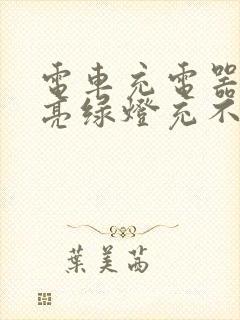 電車充電器
亮绿燈充不
葉美茜